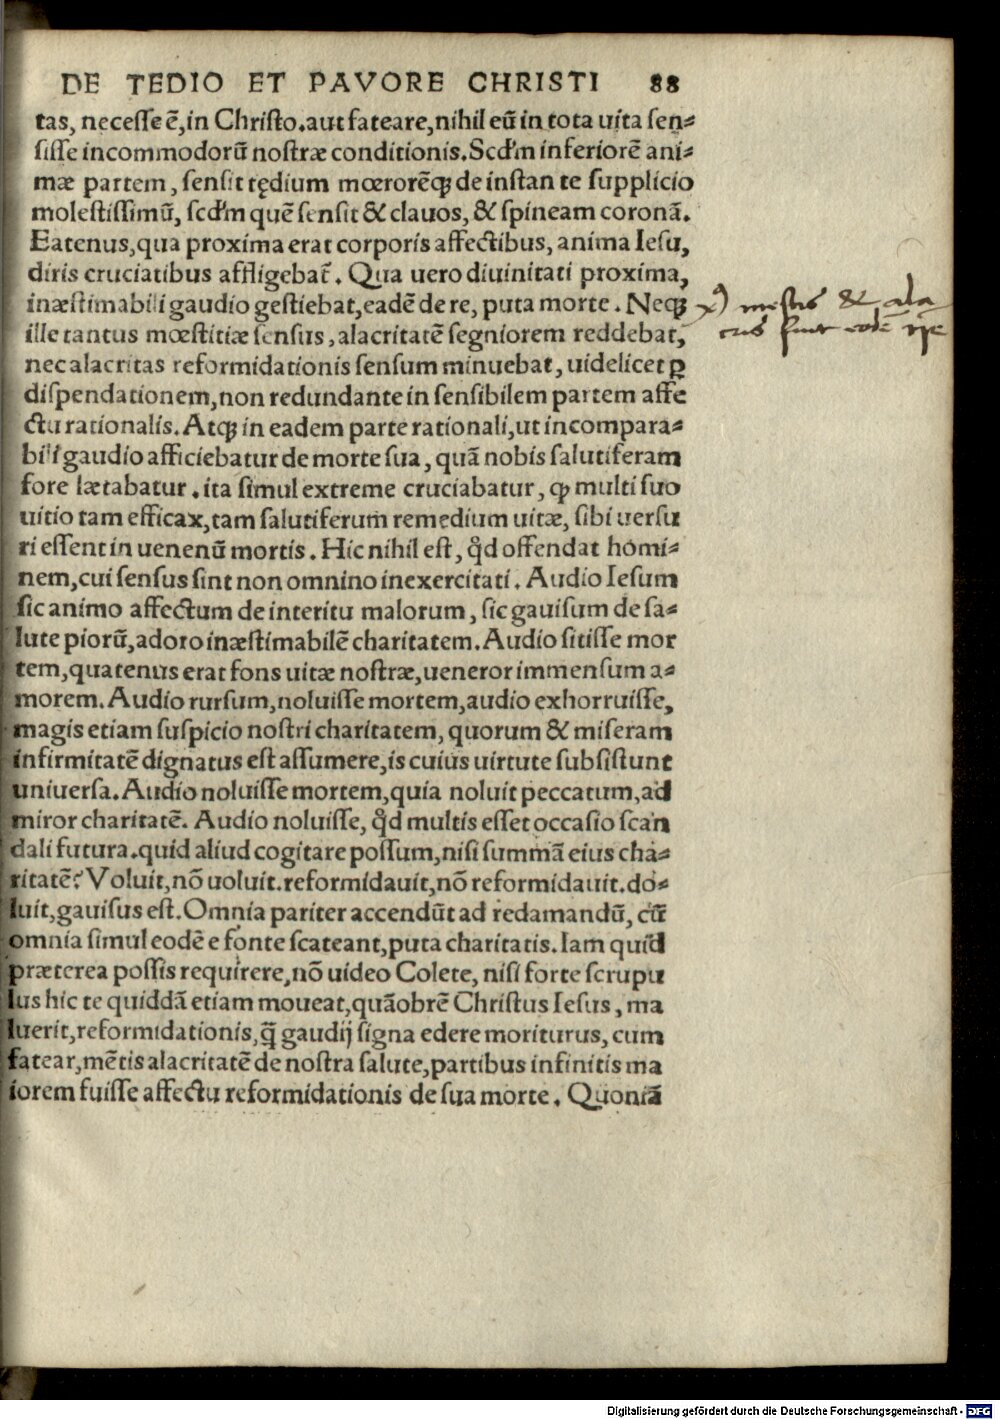 DE TEDIO ET PAVORE CHRISTI 88
tas, necesse ē, in Christo. aut fateare, nihil eū in tota uita sen⸗
sisse incommodorū nostræ conditionis. Scd'm inferiorē ani⸗
mæ partem, sensit tędium mœrorēq; de instan te supplicio
molestissimū, scd'm quē sensit & clauos, & spineam coronā.
Eatenus, qua proxima erat corporis affectibus, anima Iesu,
diris cruciatibus affligebat̄. Qua uero diuinitati proxima,
inæstimabili gaudio gestiebat, eadē de re, puta morte. Neq;
ille tantus mœstitiæ sensus, alacritatē segniorem reddebat,
nec alacritas reformidationis sensum minuebat, uidelicet ꝑ
dispendationem, non redundante in sensibilem partem affe
ctu rationalis. Atq; in eadem parte rationali, ut incompara⸗
bili gaudio afficiebatur de morte sua, quā nobis salutiferam
fore lætabatur. ita simul extreme cruciabatur, ꝙ multi suo
uitio tam efficax, tam salutiferum remedium uitæ, sibi uersu
ri essent in uenenū mortis. Hic nihil est, qd̉ offendat homi⸗
nem, cui sensus sint non omnino inexercitati. Audio Iesum
sic animo affectum de interitu malorum, sic gauisum de sa⸗
lute piorū, adoro inæstimabilē charitatem. Audio sitisse mor
tem, quatenus erat fons uitæ nostræ, ueneror immensum a⸗
morem. Audio rursum, noluisse mortem, audio exhorruisse,
magis etiam suspicio nostri charitatem, quorum & miseram
infirmitatē dignatus est assumere, is cuius uirtute subsistunt
uniuersa. Audio noluisse mortem, quia noluit peccatum, ad
miror charitatē. Audio noluisse, qd̉ multis esset occasio scan
dali futura. quid aliud cogitare possum, nisi summā eius cha⸗
ritatē? Voluit, nō uoluit. reformidauit, nō reformidauit. do⸗
luit, gauisus est. Omnia pariter accendūt ad redamandū, cū
omnia simul eodē e fonte scateant, puta charitatis. Iam quid
præterea possis requirere, nō uideo Colete, nisi forte scrupu
lus hic te quiddā etiam moueat, quāobrē Christus Iesus, ma
luerit, reformidationis, q̄ gaudij signa edere moriturus, cum
fatear, mētis alacritatē de nostra salute, partibus infinitis ma
iorem fuisse affectu reformidationis de sua morte. Quoniā
&
Digitalisierung gefördert durch die Deutsche Forschungsgemeinschaft - DFG